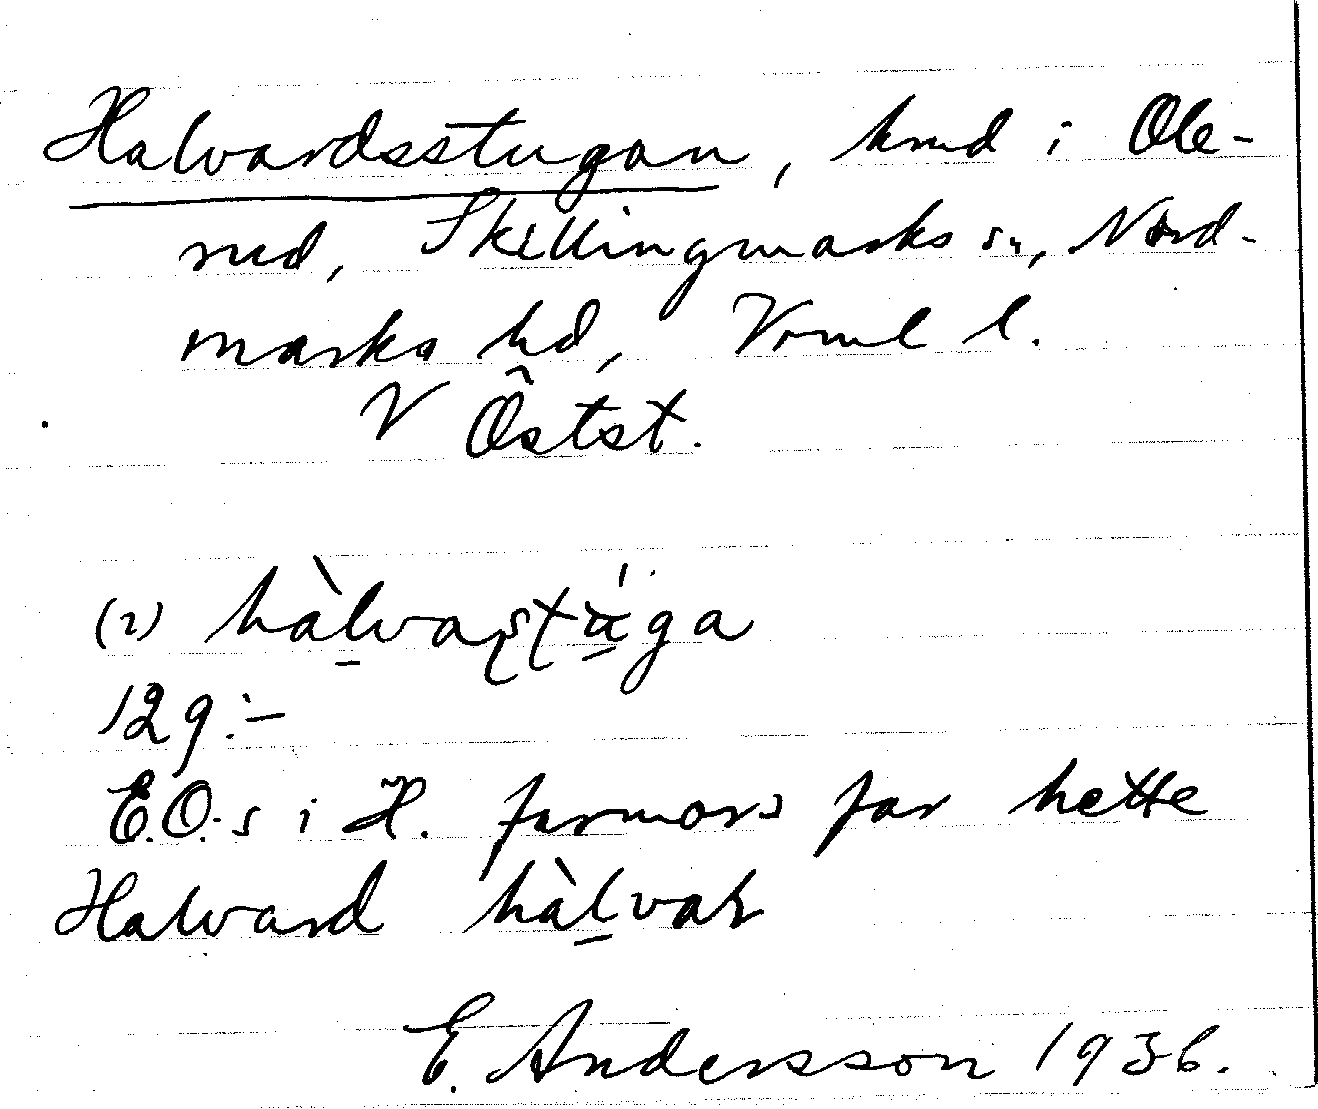 Halvardsstugan, hmd i Ole-
rud, Skillingmarks sn, Nord-
marks hd, Vrml l.
V Östst.
(2) hàlvaştu̍ga
129:-
E.O.s i H. farmors far hette
Halvard hàlvar
E. Andersson 1936.